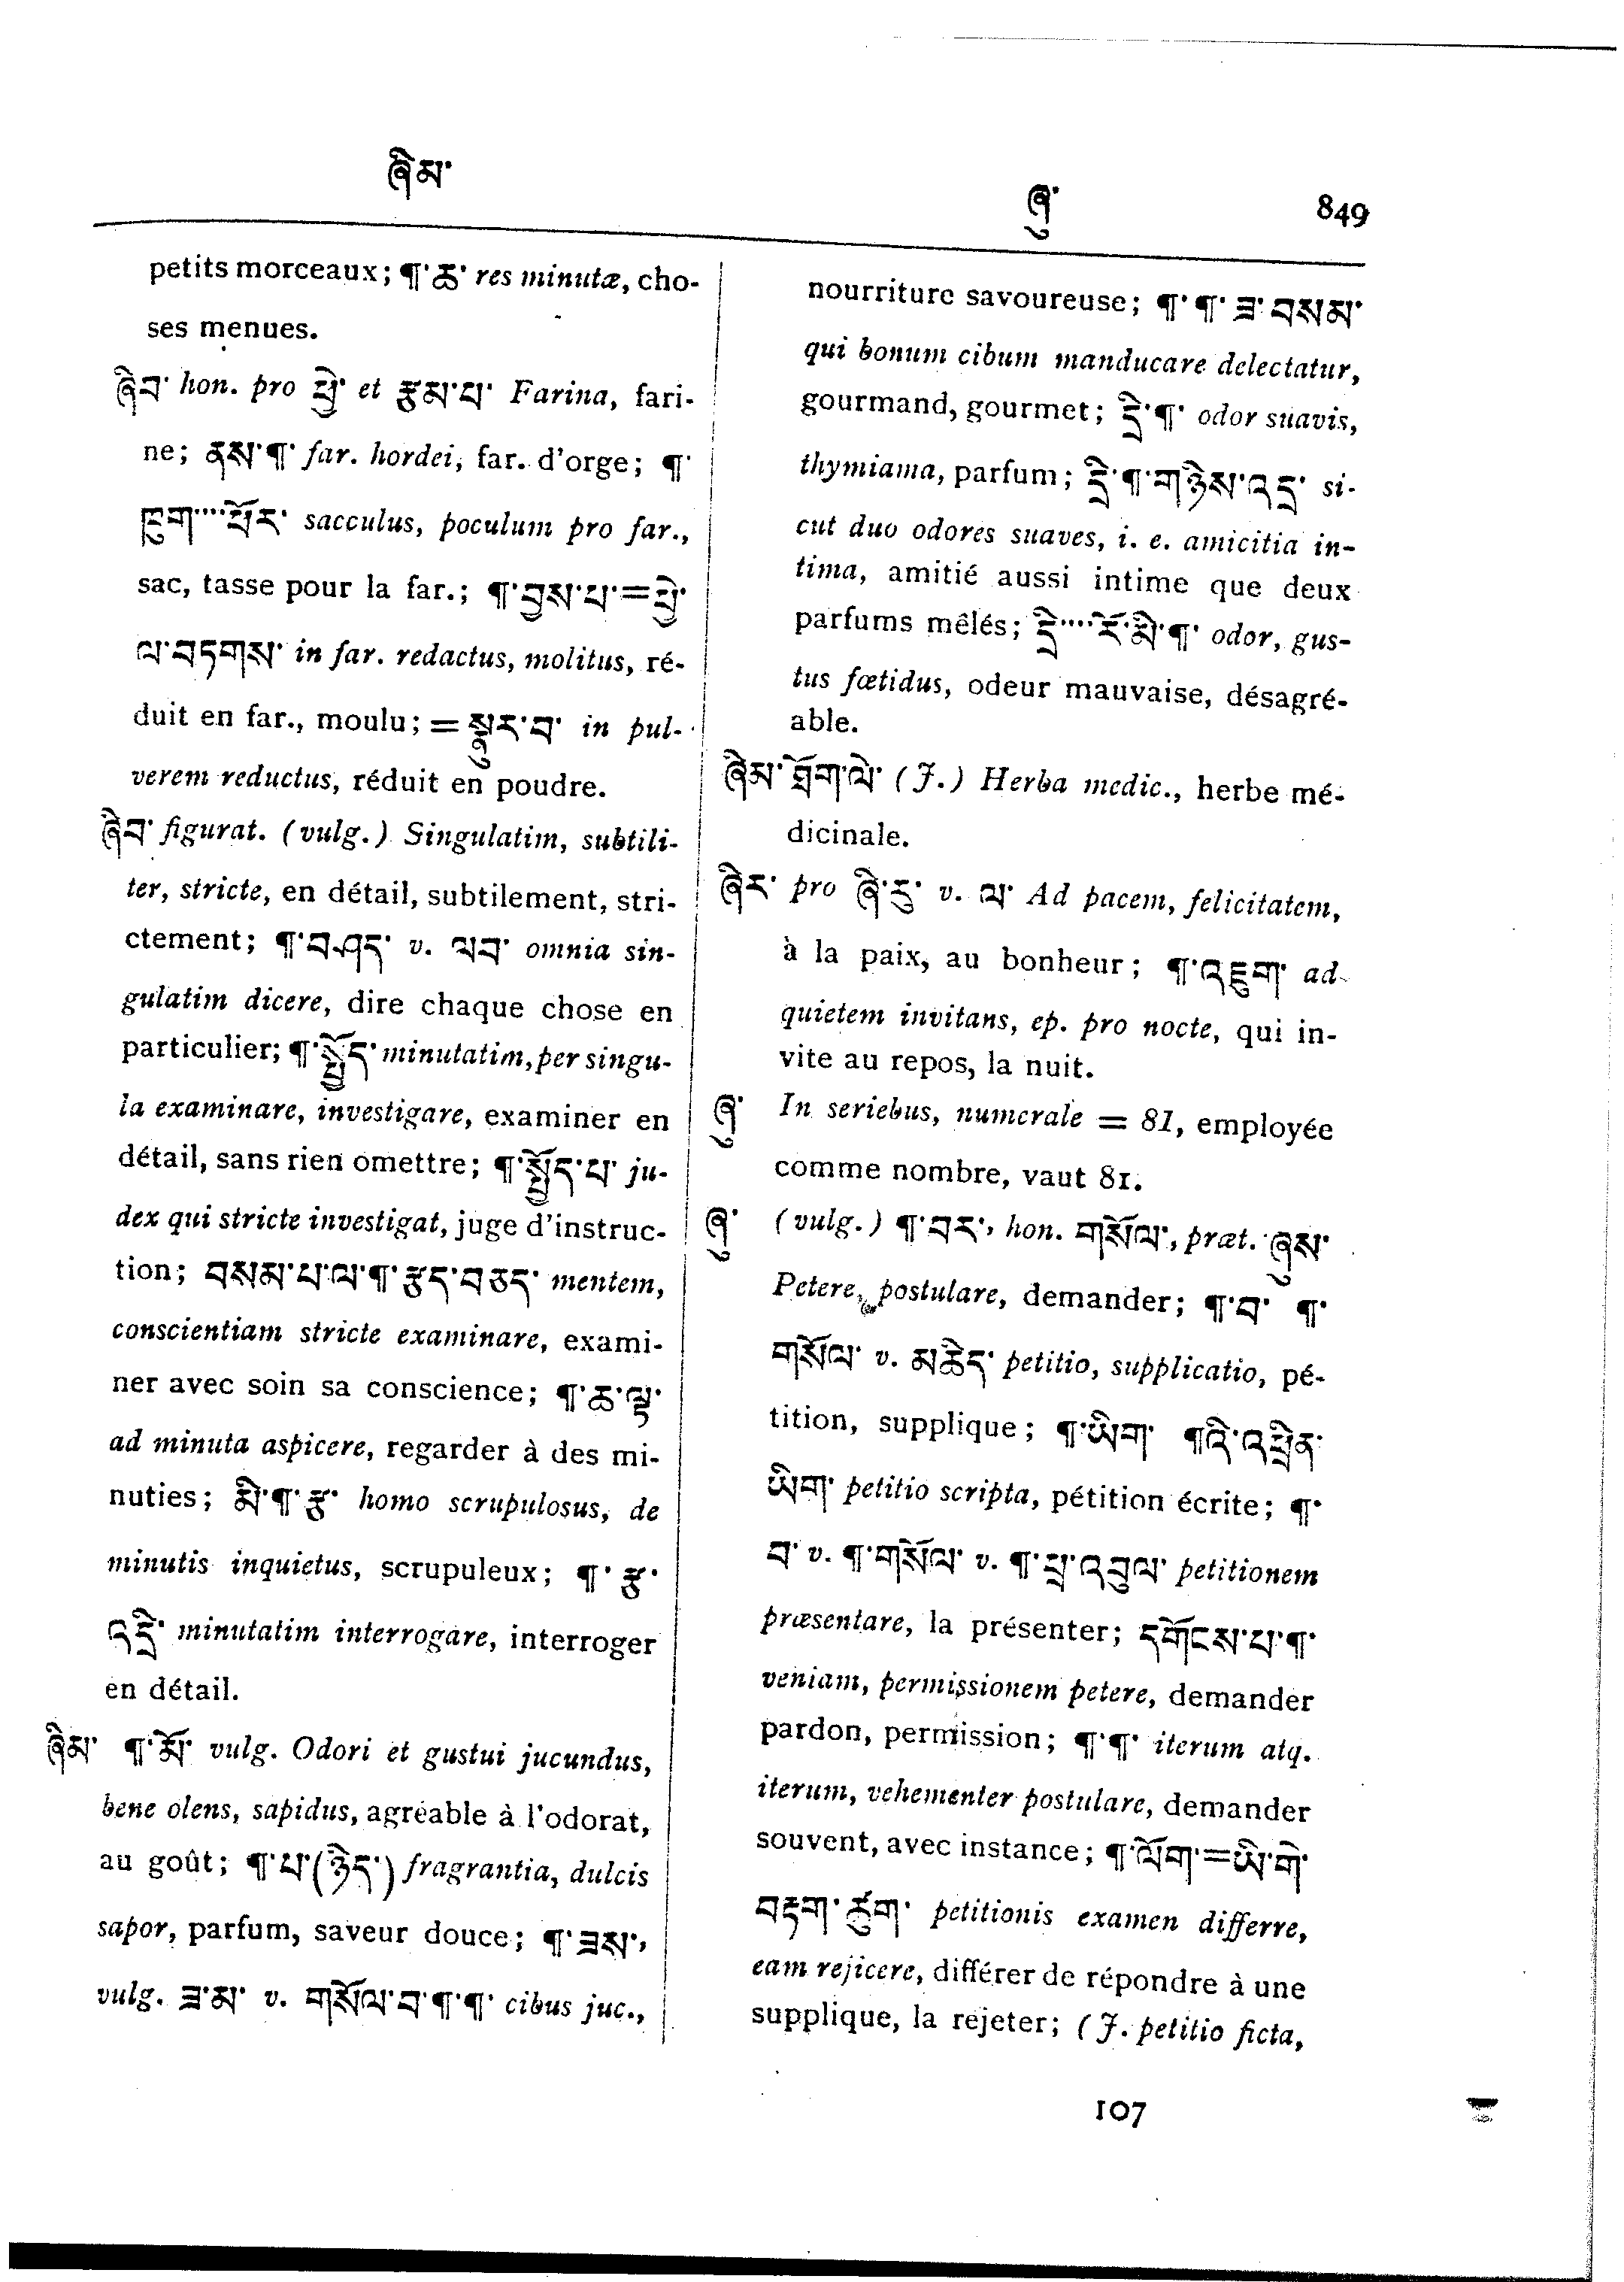 ཞིམ་
ཞུ་ 849
petits morceaux; ¶་ཆ་ res minutæ, cho-
ses menues.
ཞིབ་ hon. pro ཕྱེ་ et རྩམ་པ་ Farina, fari-
ne; ནས་¶་ far. hordei, far. d'orge; ¶་
ཁུག་····ཕོར་ sacculus, poculum pro far.,
sac, tasse pour la far.; ¶་བྱས་པ་=ཕྱེ་
ལ་བཏགས་ in far. redactus, molitus, ré-
duit en far., moulu; = སྣུར་བ་ in pul-
verem reductus, réduit en poudre.
ཞིབ་ figurat. (vulg.) Singulatim, subtili-
ter, stricte, en détail, subtilement, stri-
ctement; ¶་བཤད་ v. ལབ་ omnia sin-
gulatim dicere, dire chaque chose en
particulier; ¶་སྤྱོད་ minutatim, per singu-
la examinare, investigare, examiner en
détail, sans rien omettre; ¶་སྤྱོད་པ་ ju-
dex qui stricte investigat, juge d'instruc-
tion; བསམ་པ་ལ་¶་རྩད་བཅད་ mentem,
conscientiam stricte examinare, exami-
ner avec soin sa conscience; ¶་ཆ་ལྟ་
ad minuta aspicere, regarder à des mi-
nuties; མི་¶་རྩ་ homo scrupulosus, de
minutis inquietus, scrupuleux; ¶་རྩ་
འདྲི་ minutatim interrogare, interroger
en détail.
ཞིམ་ ¶་མོ་ vulg. Odori et gustui jucundus,
bene olens, sapidus, agréable à l'odorat,
au goût; ¶་པ་(ཉིད་) fragrantia, dulcis
sapor, parfum, saveur douce; ¶་ཟས་,
vulg. ཟ་མ་ v. གསོལ་བ་¶་¶་ cibus juc.,
nourriture savoureuse; ¶་¶་ཟ་བསམ་
qui bonum cibum manducare delectatur,
gourmand, gourmet; དྲི་¶་ odor suavis,
thymiama, parfum; དྲི་¶་གཉིས་འདྲ་ si-
cut duo odores suaves, i. e. amicitia in-
tima, amitié aussi intime que deux
parfums mêlés; དྲི་····རོ་མི་¶་ odor, gus-
tus fœtidus, odeur mauvaise, désagré-
able.
ཞིམ་ཐོག་ལེ་ (J.) Herba medic., herbe mé-
dicinale.
ཞིར་ pro ཞི་རུ་ v. ལ་ Ad pacem, felicitatem,
à la paix, au bonheur; ¶་འཇུག་ ad
quietem invitans, ep. pro nocte, qui in-
vite au repos, la nuit.
ཞུ་ In seriebus, numerale = 81, employée
comme nombre, vaut 81.
ཞུ་ (vulg.) ¶་བར་, hon. གསོལ་, præt. ཞུས་
Petere, postulare, demander; ¶་བ་ ¶་
གསོལ་ v. མཆིད་ petitio, supplicatio, pé-
tition, supplique; ¶་ཡིག་ ¶འི་འཕྲིན་
ཡིག་ petitio scripta, pétition écrite; ¶་
བ་ v. ¶་གསོལ་ v. ¶་ཕྲ་འབུལ་ petitionem
præsentare, la présenter; དགོངས་པ་¶་
veniam, permissionem petere, demander
pardon, permission; ¶་¶་ iterum atq.
iterum, vehementer postulare, demander
souvent, avec instance; ¶་ལོག་=ཡི་གེ་
བརྟག་ཚུག་ petitionis examen differre,
eam rejicere, différer de répondre à une
supplique, la rejeter; (J. petitio ficta,
107